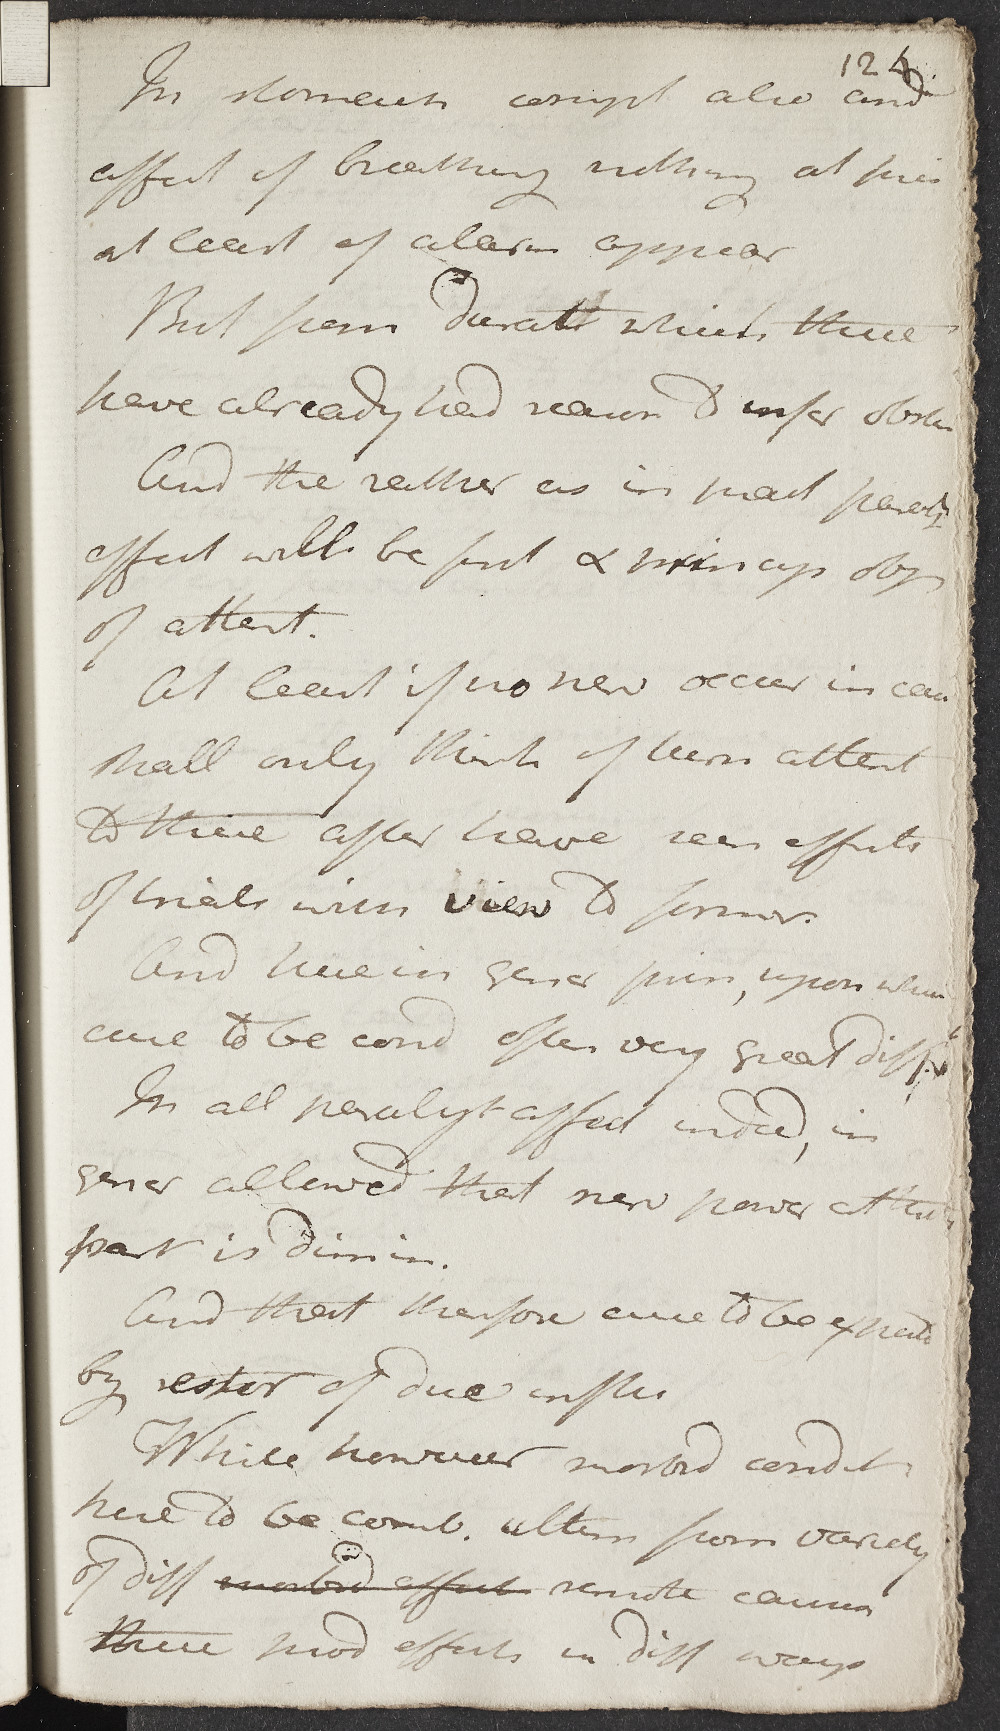 124
In stomach compt also and
affect of breathing nothing at
at least of alarm appear
But from durat which these
have already had reason to infer obstin
And the rather as in pract
effect will be first & princip obj
of attent.
At least if no new occur in cau
shall only think of turn attent
to these after have seen effects
of trials with view to former
And here in gener prin, upon which
cure to be cond often very great diff
In all paralyt affect indeed, in
gener allowed that nerv power at
part is dimin.
And that therefore cure to be expected
by restor of due influ
While however morbid condit
here to be comb. often from variety
of diff morbid effect remote causes
these prod effects in diff ways